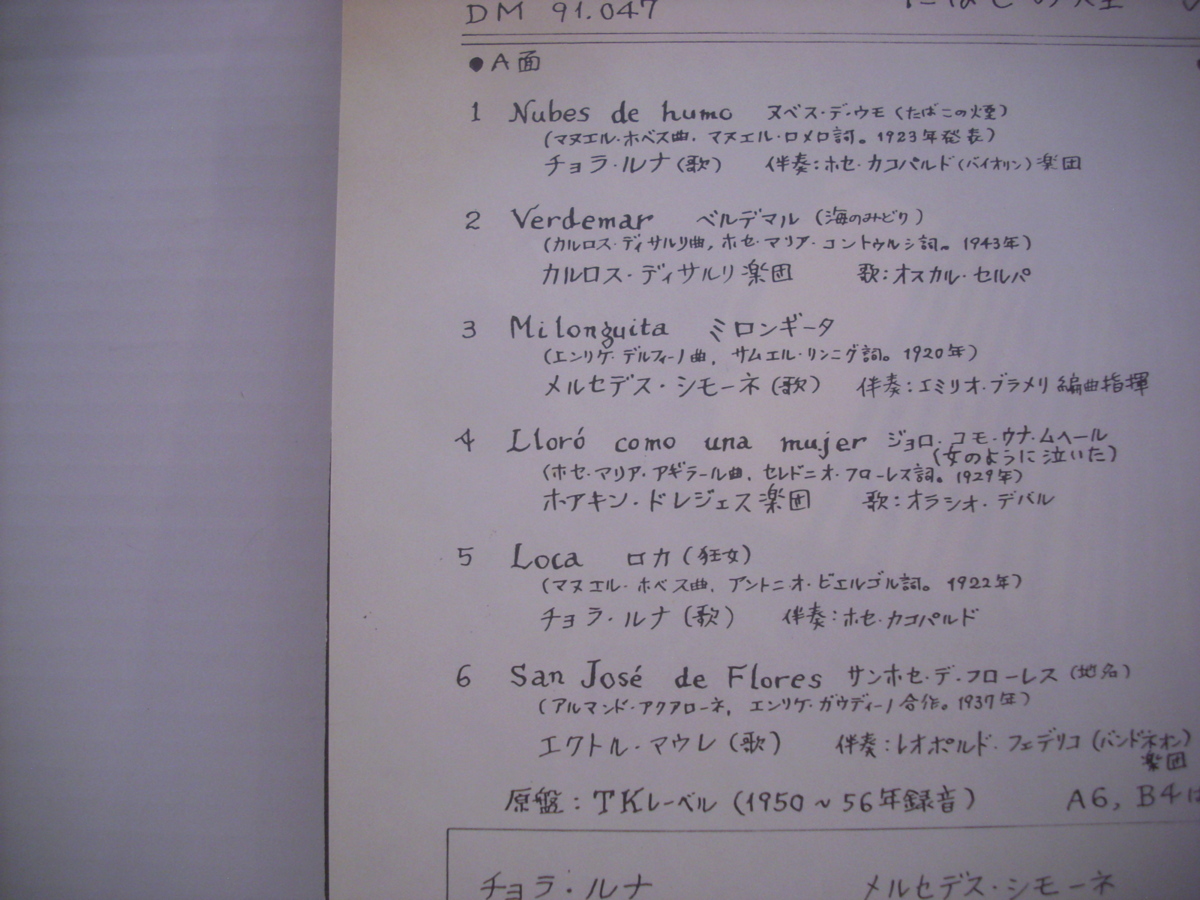 DM 91.047
●A面
1 Nubes de humo ヌベス・デ・ウモ (たばこの煙)
(マヌエル・ホベス曲. マヌエル・ロメロ詞。1923年発表)
チョラ・ルナ (歌) 伴奏:ホセ・カコパルド(バイオリン)楽団
2 Verdemar ベルデマル (海のみどり)
(カルロス・ディサルリ曲, ホセ・マリア・コントゥルシ詞。1943年)
カルロス・ディサルリ楽団 歌:オスカル・セルパ
3 Milonguita ミロンギータ
(エンリケ・デルフィーノ曲, サムエル・リンニグ詞。1920年)
メルセデス・シモーネ (歌) 伴奏:エミリオ・ブラメリ編曲指揮
4 Lloró como una mujer ジョロ・コモ・ウナ・ムヘール
(女のように泣いた)
(ホセ・マリア・アギラール曲, セレドニオ・フローレス詞。1929年)
ホアキン・ドレジェス楽団 歌:オラシオ・デバル
5 Loca ロカ (狂女)
(マヌエル・ホベス曲, アントニオ・ビエルゴル詞。1922年)
チョラ・ルナ (歌) 伴奏:ホセ・カコパルド
6 San José de Flores サンホセ・デ・フローレス (地名)
(アルマンド・アクアローネ, エンリケ・ガウディーノ合作。1937年)
エクトル・マウレ (歌) 伴奏:レオポルド・フェデリコ (バンドネオン)
楽団
原盤:TKレーベル (1950~56年録音) A6, B4は
チョラ・ルナ メルセデス・シモーネ